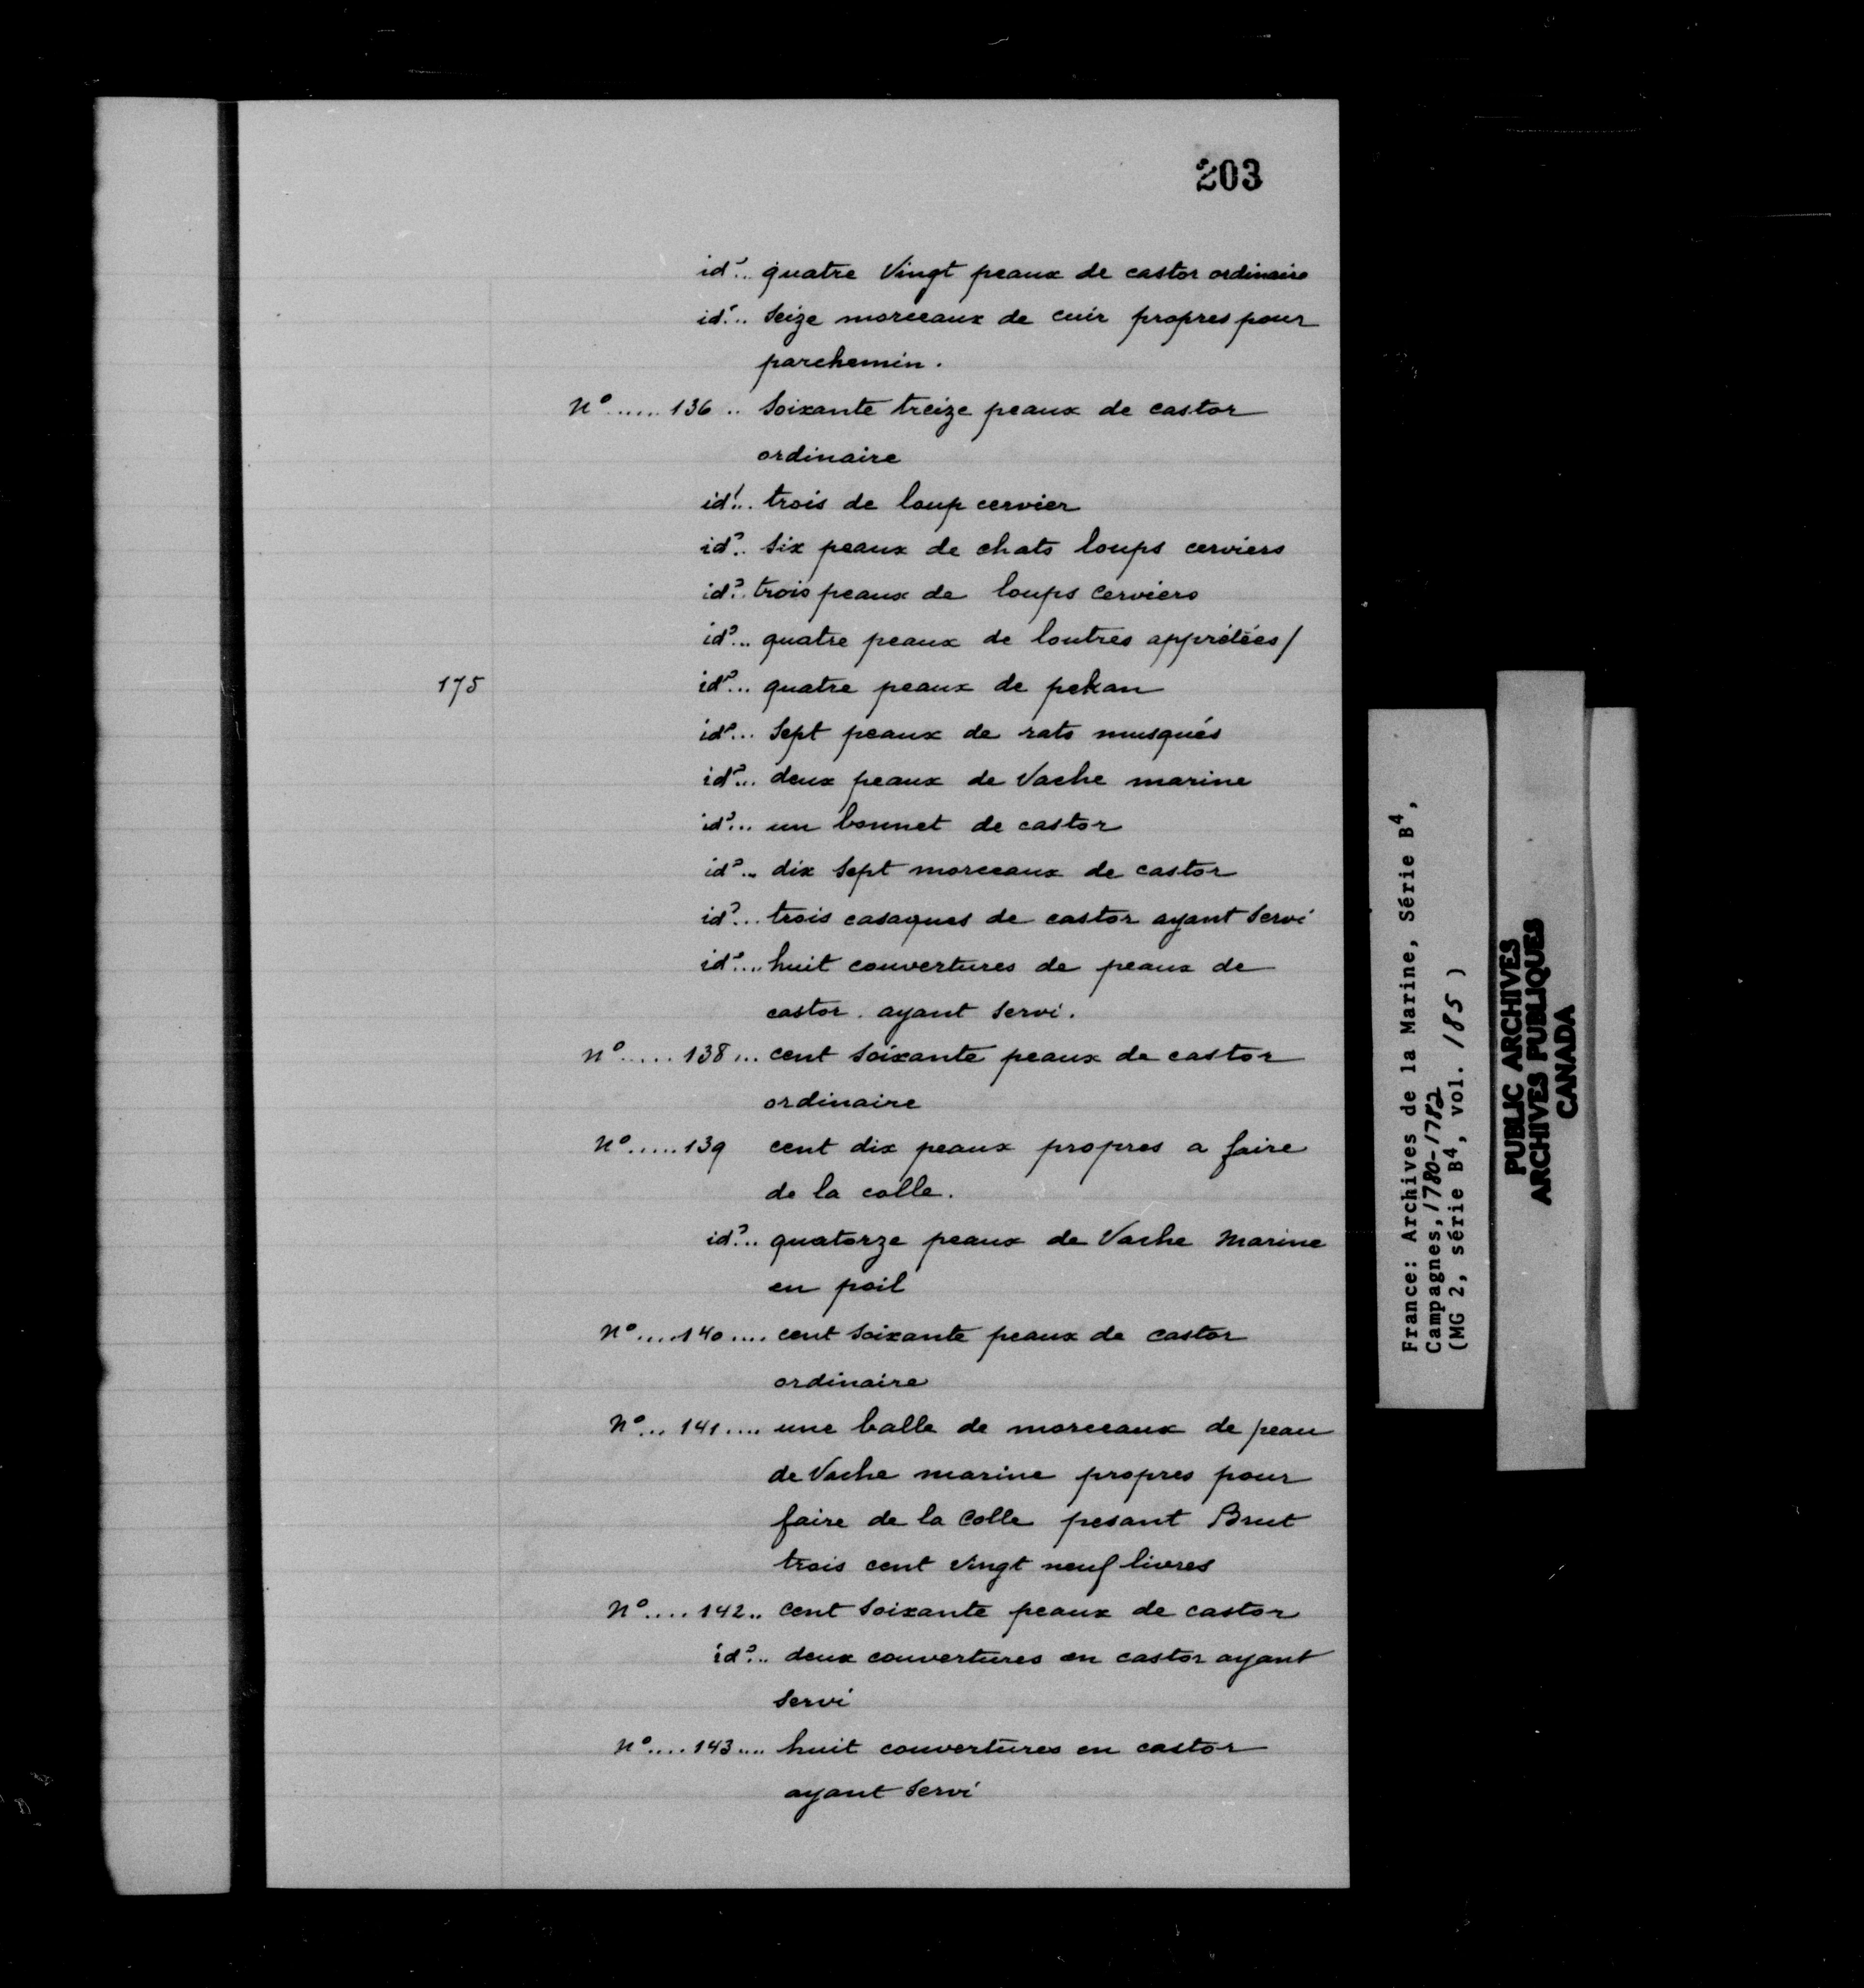 203
id°.. quatre Vingt peaux de castor ordinaire
id°.. Seize morceaux de cuir propres pour
parchemin.
N°...... 136 .. Soixante treize peaux de castor
ordinaire
id°... trois de loup cervier
id°.. Six peaux de chats loups cerviers
id°. trois peaux de loups Cerviers
id°... quatre peaux de loutres apprétées/
175 id°... quatre peaux de pekan
id°... Sept peaux de rats musqués
id°... deux peaux de Vache marine
id°... un bonnet de castor
id°.. dix Sept morceaux de castor
id°... trois casaques de castor ayant Servi
id°... huit couvertures de peaux de
castor. ayant Servi.
N°..... 138 ... cent Soixante peaux de castor
ordinaire
N°..... 139 cent dix peaux propres a faire
de la colle.
id°... quatorze peaux de Vache Marine
en poil
N°.... 140 .... cent Soixante peaux de castor
ordinaire
N°... 141 .... une balle de morceaux de peau
de Vache marine propres pour
faire de la Colle pesant Brut
trois cent Vingt neuf livres
N°.... 142 .. Cent Soixante peaux de castor
id°... deux couvertures en castor ayant
Servi
N°.... 143 .... huit couvertures en castor
ayant Servi
France: Archives de la Marine, Série B4,
Campagnes, 1780-1782
(MG 2, série B4, vol. 185 )
PUBLIC ARCHIVES
ARCHIVES PUBLIQUES
CANADA